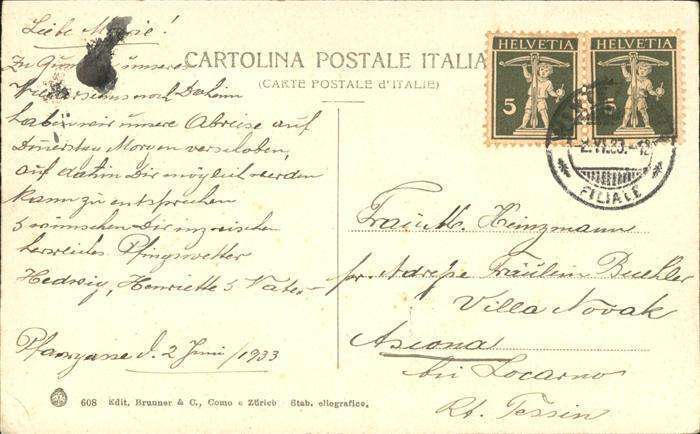 Liebe M ie!
CARTOLINA POSTALE ITALIA
(CARTE POSTALE d'ITALIE)
HELVETIA 5
HELVETIA 5
2.VI.33.-12
FILIALE
Zu unseres
Wiedersehens nach Daheim
haben wir unsere Abreise auf
Donerstag Morgen verschoben,
auf dahin Dir möglich werden
kann zu entsprechen
&wünschen Dir inzwischen
herrliches Pfingswetter
Hedwig, Henriette & Vater-
d. 2 Juni/1933
Frau M. Heinzmann
pr. Adresse Fräulein Buehler
Villa Novak
Ascona
bei Locarno
Kt. Tessin
608 Edit. Brunner & C., Como e Zürich Stab. eliografico.